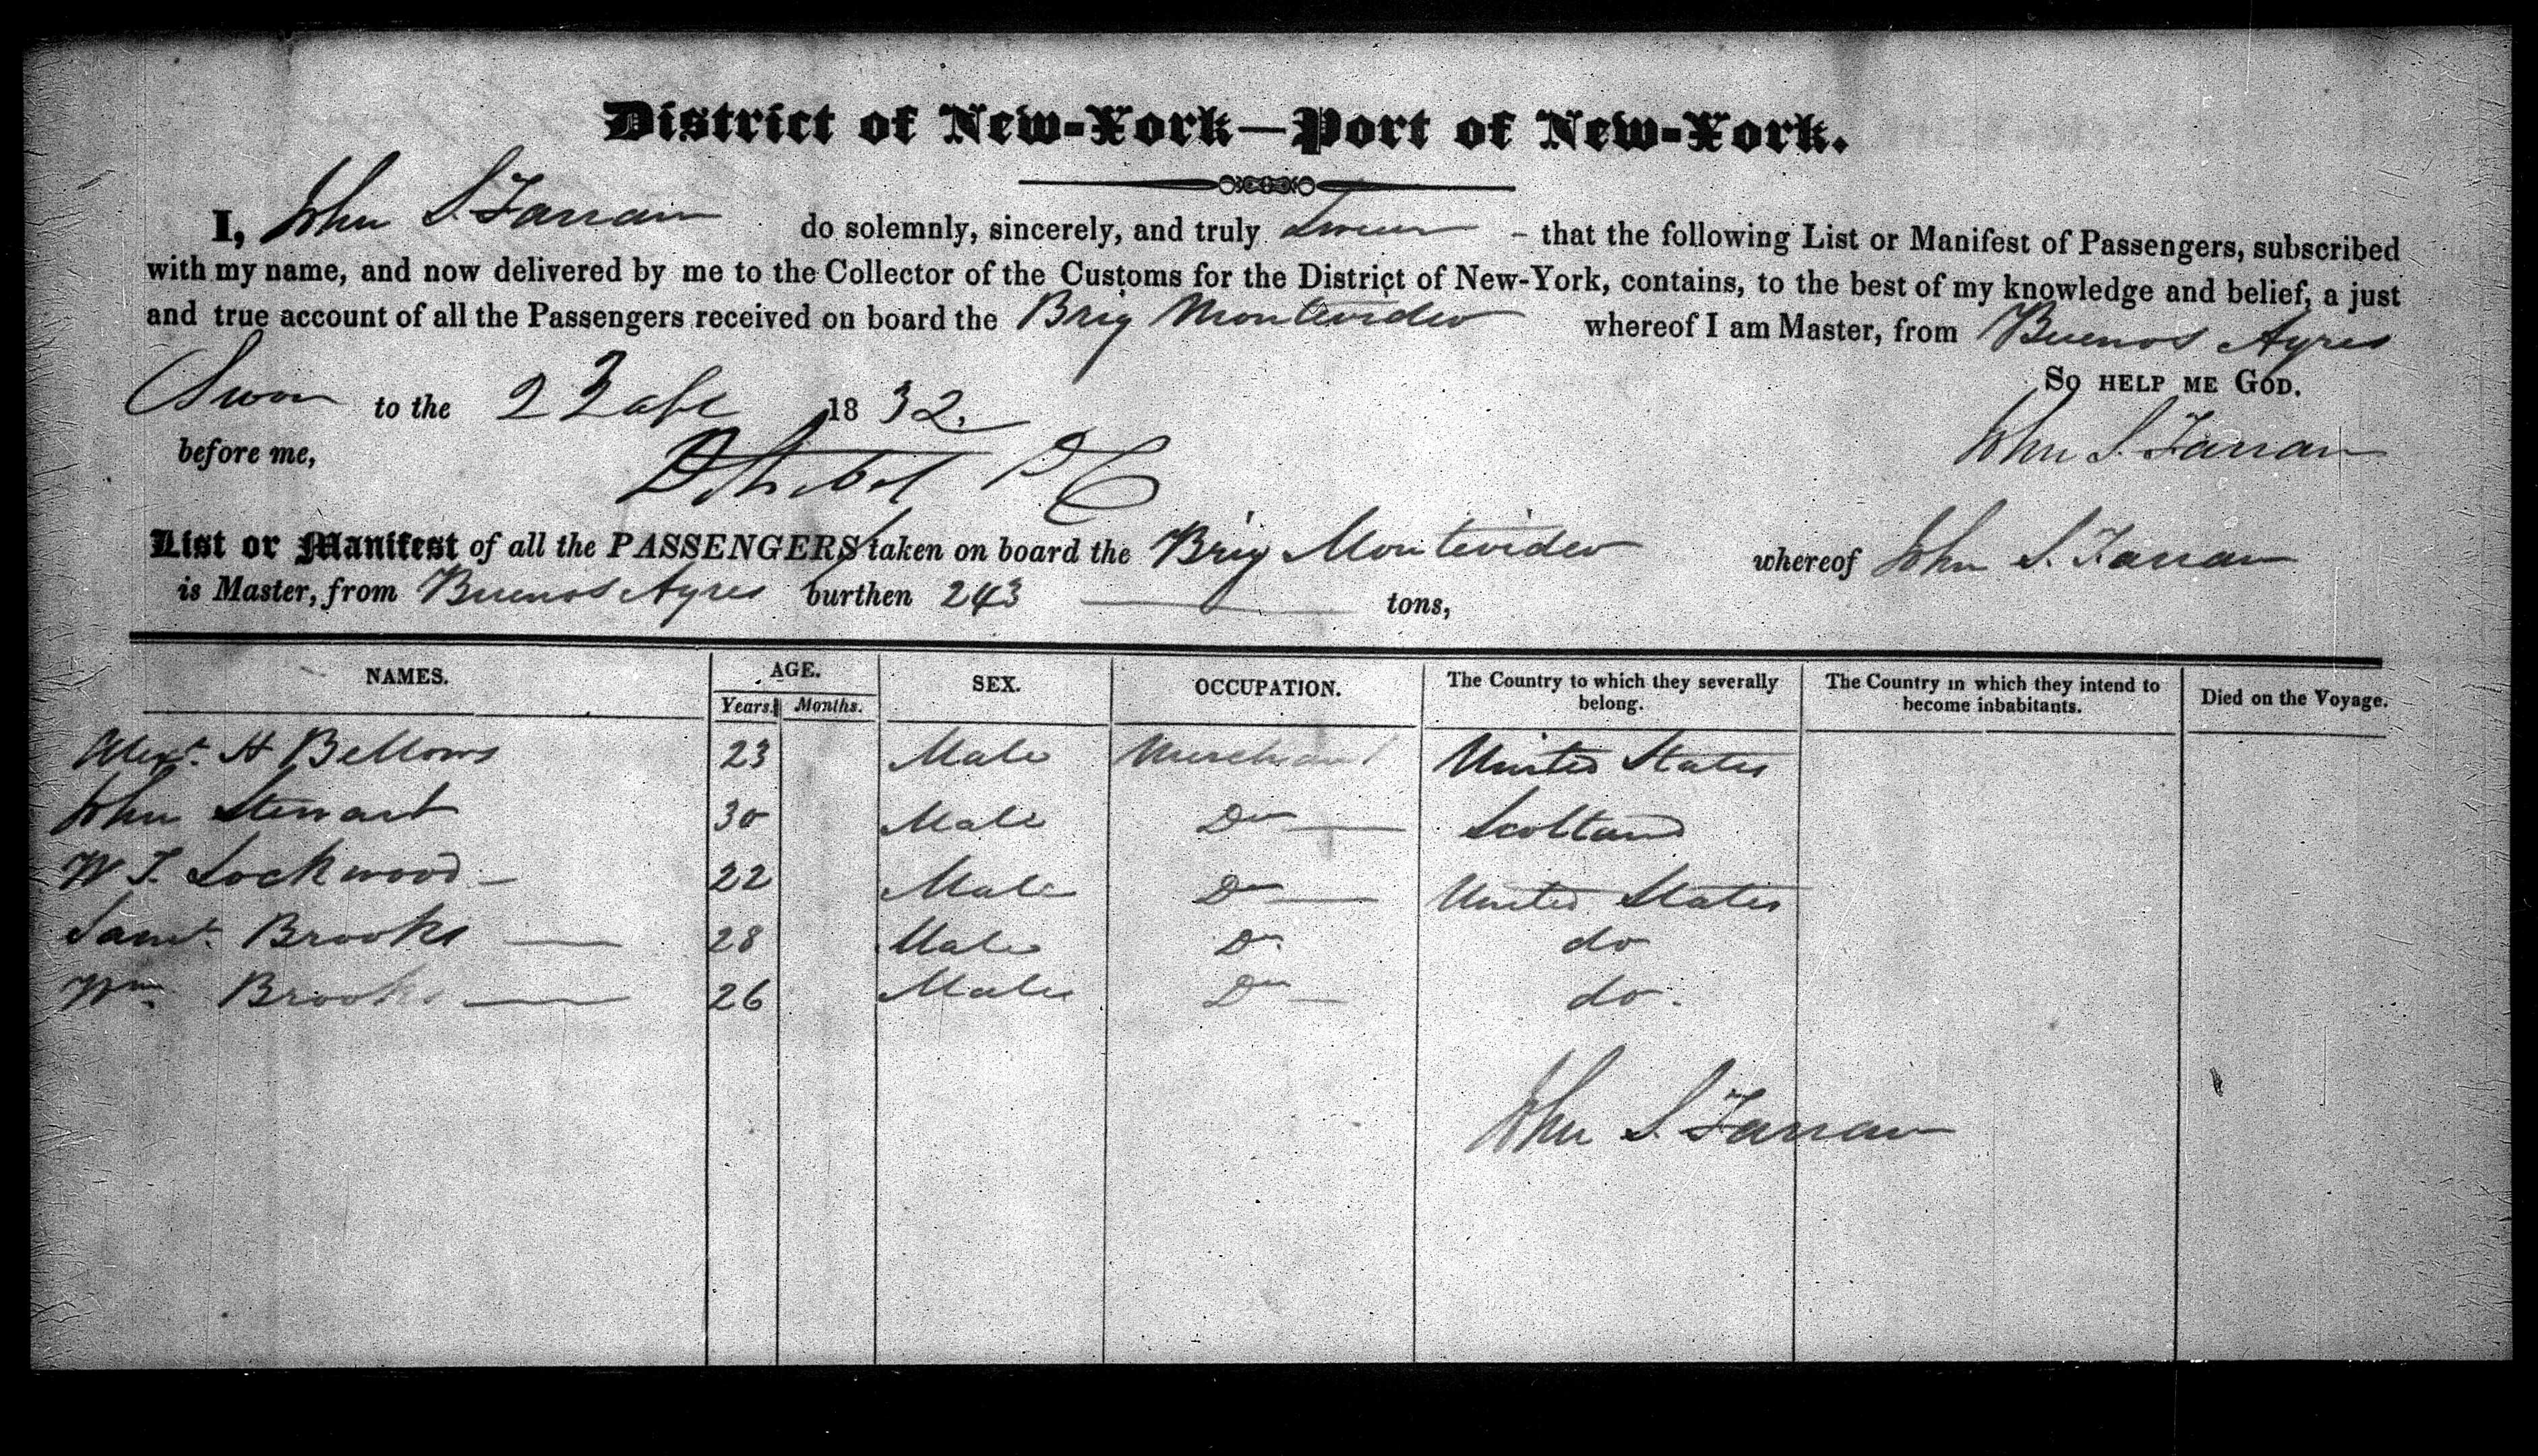 District of New-York—Port of New-York.
I, John S. Farran do solemnly, sincerely, and truly Swear – that the following List or Manifest of Passengers, subscribed
with my name, and now delivered by me to the Collector of the Customs for the District of New-York, contains, to the best of my knowledge and belief, a just
and true account of all the Passengers received on board the Brig Montevideo whereof I am Master, from Buenos Ayres
So help me God.
Swon to the 23 1832.
before me, John S. Farran
List or Manifest of all the PASSENGERS taken on board the Brig Montevideo whereof John S. Farran
is Master, from Buenos Ayres burthen 243 tons,
NAMES. AGE. SEX. OCCUPATION. The Country to which they severally belong. The Country in which they intend to become inhabitants. Died on the Voyage.
Years. Months.
Alexr. H Bellows 23 Male Merchant United States
John Stewart 30 Male Do Scotland
W T. Lockwood 22 Male Do United States
Saml. Brooks 28 Male Do do
Wm. Brooks 26 Male Do do.
John S. Farran